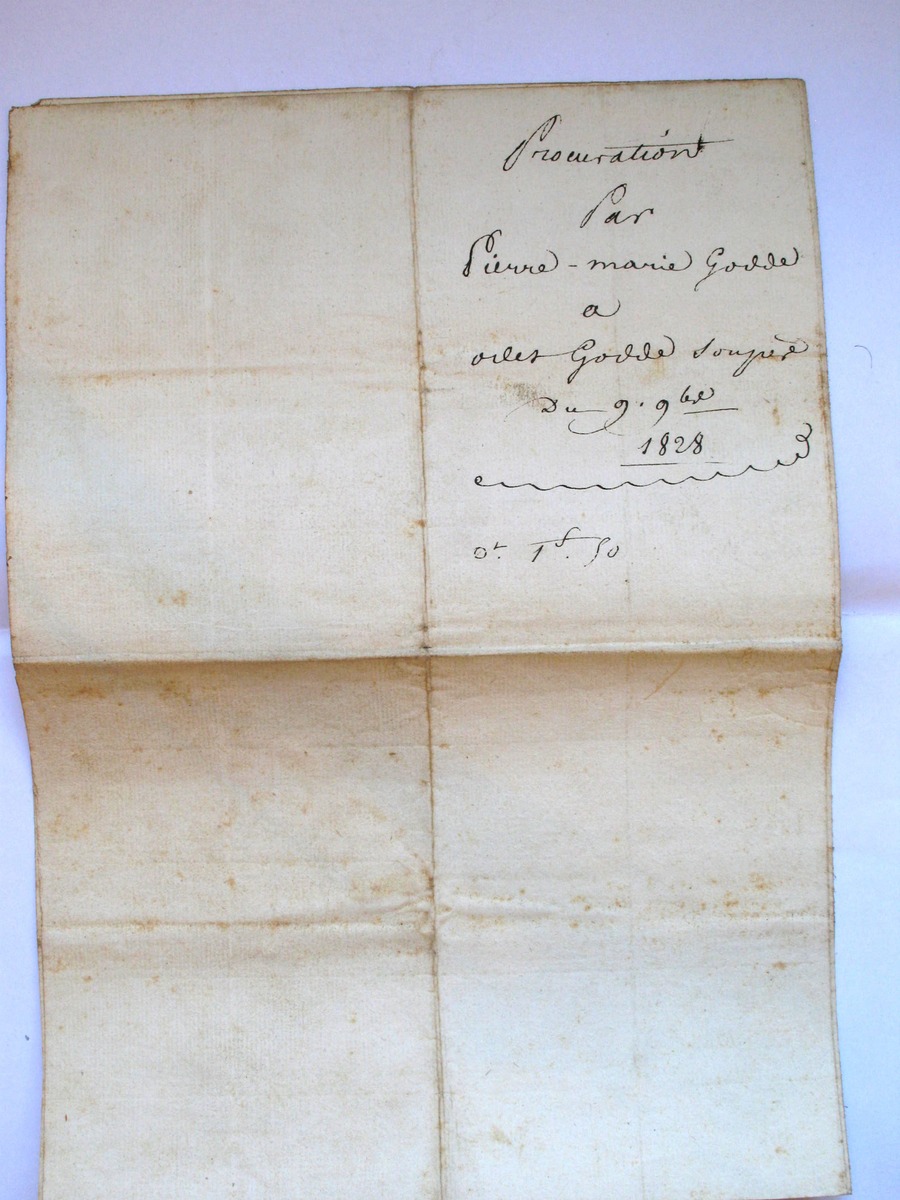 Procuration
Par
Pierre-marie Godde
a
odet Godde Sonpère
Du 9. 9bre
1828
Dt. 1f. 50